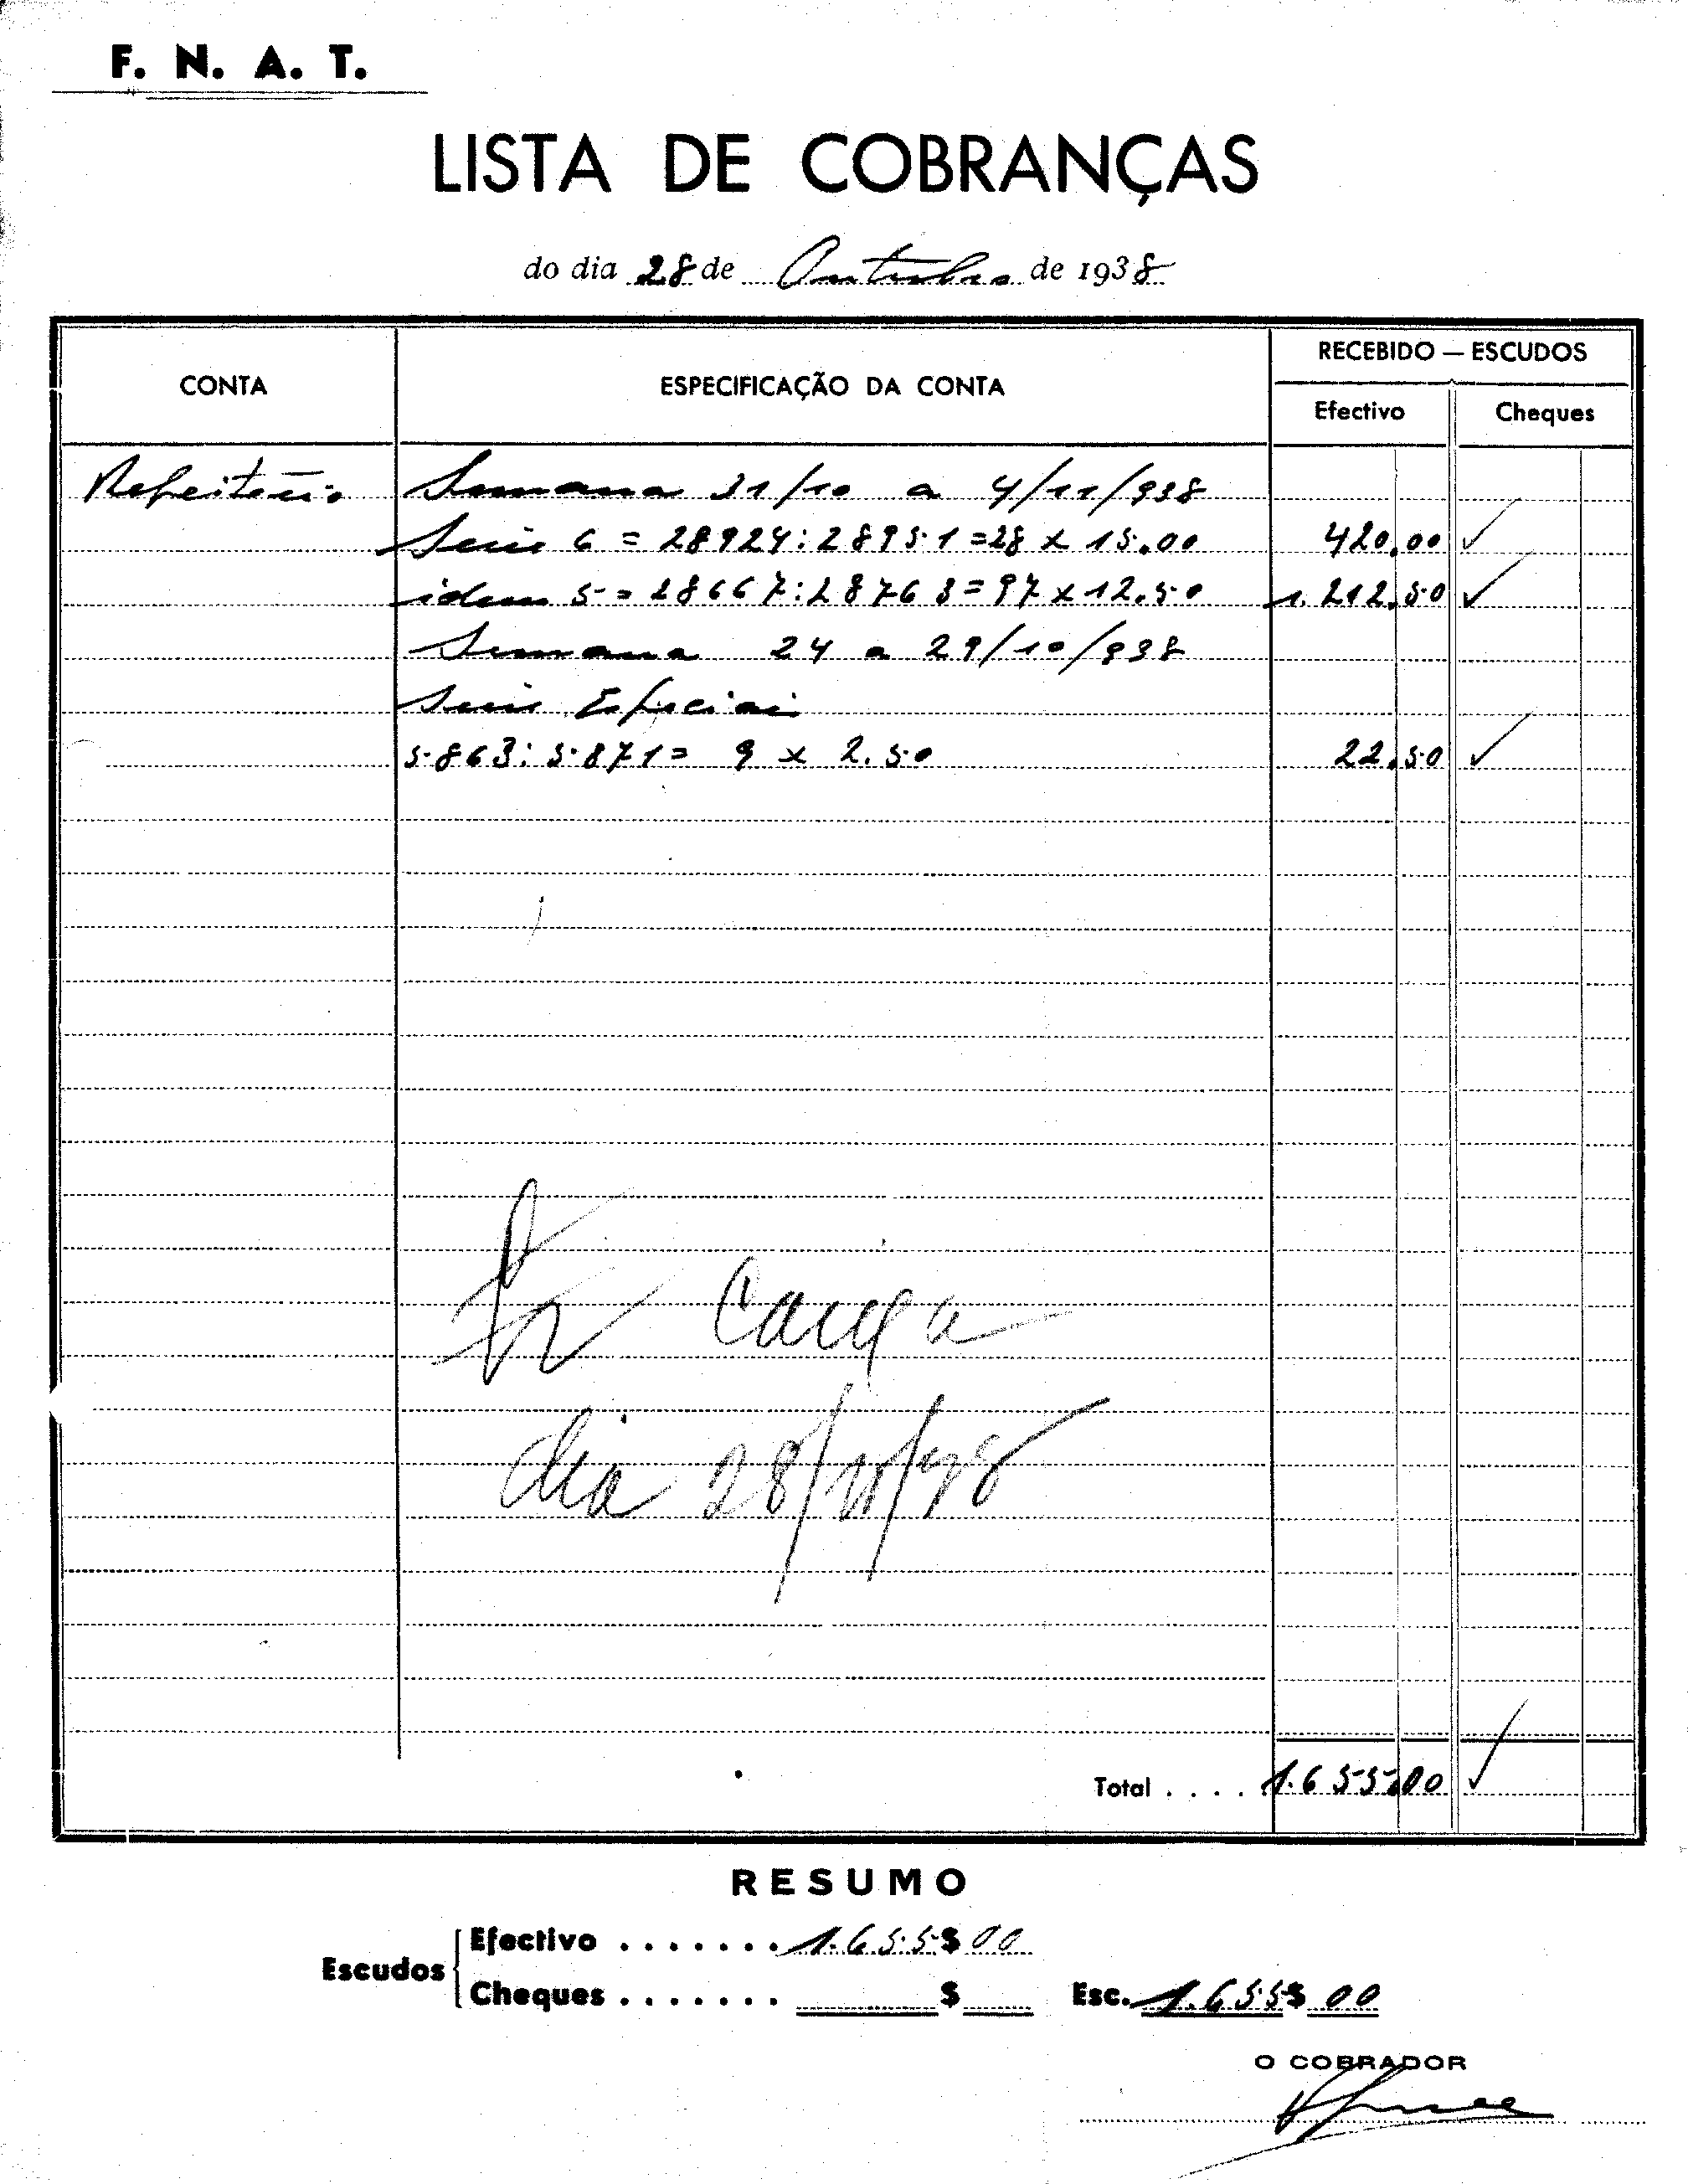 F. N. A. T.
LISTA DE COBRANÇAS
do dia 28 de Outubro de 1938
CONTA
ESPECIFICAÇÃO DA CONTA
RECEBIDO — ESCUDOS
Efectivo
Cheques
Refeitório Semana 31/10 a 4/11/938
Serie 6 = 28924:28951=28 x 15.00 420,00
idem 5 = 28667:28763=97 x 12.50 1.212,50
Semana 24 a 29/10/938
Serie Especiai
5.863:5.871= 9 x 2.50 22,50
dia 28/
Total . . . . 1.655,00
RESUMO
Escudos
Efectivo . . . . . . . 1.655$00
Cheques . . . . . . . $
Esc. 1.655$00
O COBRADOR